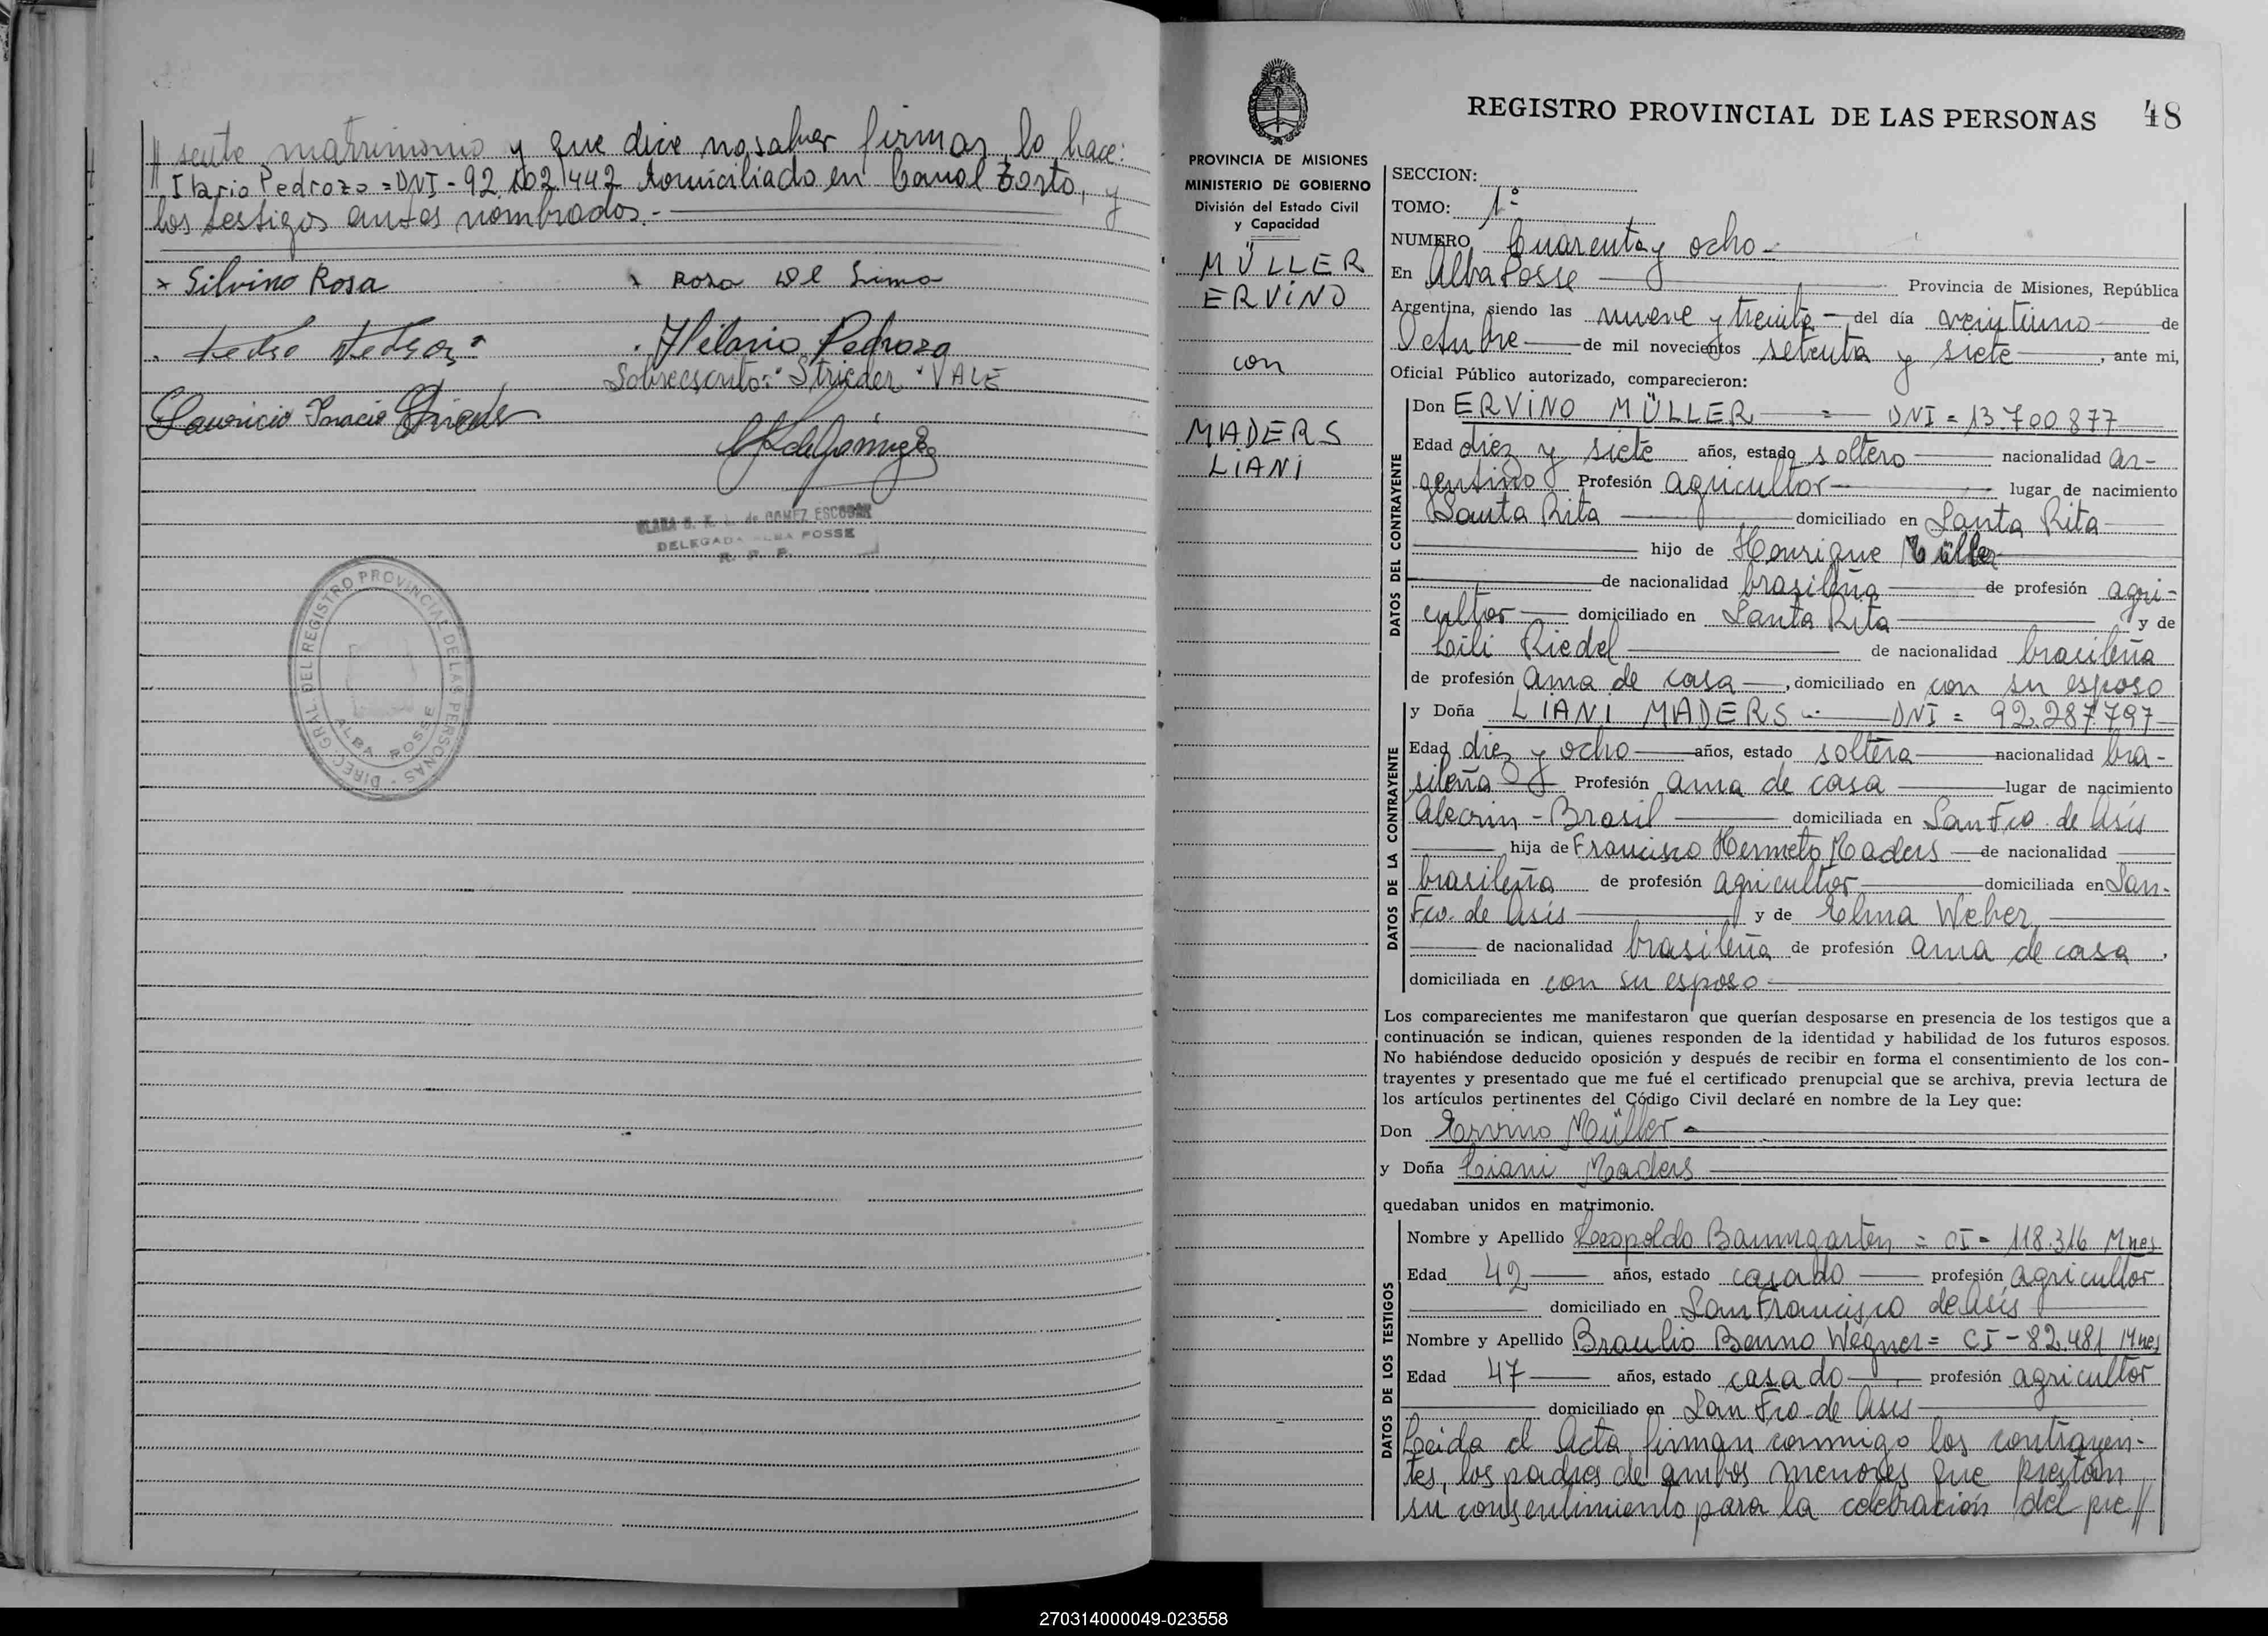 // sente matrimonio y que dice no saber firmar, lo hace:
Ilario Pedrozo = DNI - 92.102.442 domiciliado en Canal Torto, y
los testigos antes nombrados.-
x Silvino Rosa x Rosa De Lima
. Pedro Pedrozo . Hilario Pedrozo
Sobreescrito: "Strieder" VALE
Lauricio Inacio Strieder
CLARA S. K. L. de GOMEZ ESCOBAR
DELEGADA ALBA POSSE
R. P. P.
DIREC. GRAL. DEL REGISTRO PROVINCIAL DE LAS PERSONAS -
ALBA POSSE
PROVINCIA DE MISIONES
MINISTERIO DE GOBIERNO
División del Estado Civil
y Capacidad
MÜLLER
ERVINO
con
MADERS
LIANI
REGISTRO PROVINCIAL DE LAS PERSONAS 48
SECCION:
TOMO: 1º
NUMERO Cuarenta y ocho -
En Alba Posse Provincia de Misiones, República
Argentina, siendo las nueve y treinta del día veintiuno de
Octubre de mil novecientos setenta y siete, ante mi,
Oficial Público autorizado, comparecieron:
DATOS DEL CONTRAYENTE
Don ERVINO MÜLLER = DNI = 13.700.877
Edad diez y siete años, estado soltero nacionalidad ar-
gentino Profesión agricultor lugar de nacimiento
Santa Rita domiciliado en Santa Rita
hijo de Henrique Müller
de nacionalidad brasileña de profesión agri-
cultor domiciliado en Santa Rita y de
Lili Riedel de nacionalidad brasileña
de profesión ama de casa, domiciliado en con su esposo
DATOS DE LA CONTRAYENTE
y Doña LIANI MADERS - DNI = 92.287.797
Edad diez y ocho años, estado soltera nacionalidad bra-
sileña Profesión ama de casa lugar de nacimiento
Alecrin - Brasil domiciliada en San Fco. de Asís
hija de Francisco Hermeto Maders de nacionalidad
brasileña de profesión agricultor domiciliada en San-
Fco. de Asís y de Elma Weber
de nacionalidad brasileña de profesión ama de casa.
domiciliada en con su esposo
Los comparecientes me manifestaron que querían desposarse en presencia de los testigos que a
continuación se indican, quienes responden de la identidad y habilidad de los futuros esposos.
No habiéndose deducido oposición y después de recibir en forma el consentimiento de los con-
trayentes y presentado que me fué el certificado prenupcial que se archiva, previa lectura de
los artículos pertinentes del Código Civil declaré en nombre de la Ley que:
Don Ervino Müller -
y Doña Liani Maders
quedaban unidos en matrimonio.
DATOS DE LOS TESTIGOS
Nombre y Apellido Leopoldo Baumgarten = CI - 118.316 Mnes
Edad 42 años, estado casado profesión agricultor
domiciliado en San Francisco de Asís
Nombre y Apellido Braulio Benno Wegner = CI - 82.481 Mnes
Edad 47 años, estado casado profesión agricultor
domiciliado en San Fco. de Asís
Leida el Acta, firman conmigo los contrayen-
tes, los padres de ambos menores que prestan
su consentimiento para la celebración del pre//
270314000049-023558